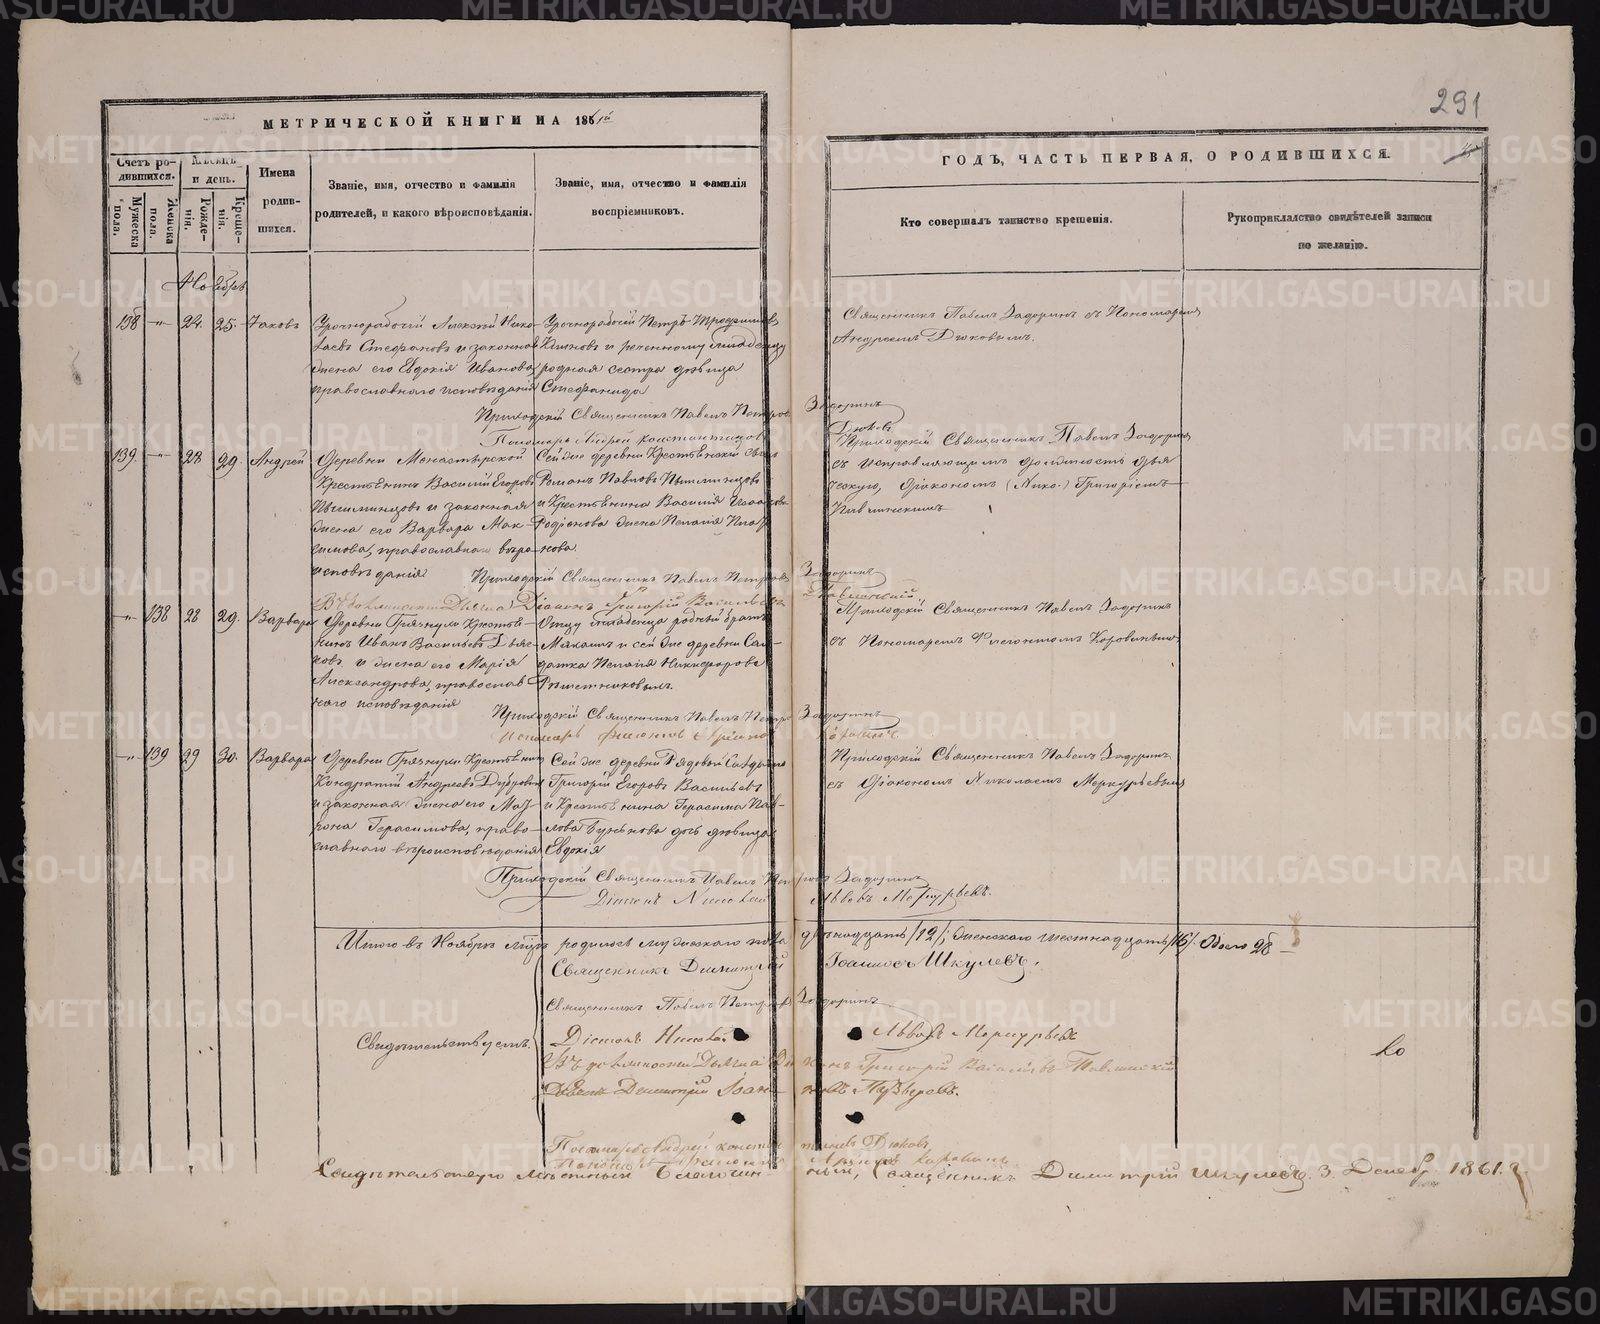 291
МЕТРИЧЕСКОЙ КНИГИ НА 1861й
ГОДЪ, ЧАСТЬ ПЕРВАЯ, О РОДИВШИХСЯ.
Счетъ ро-
дившихся.
Мужеска
пола.
Женска
пола.
Мѣсяцъ
и день.
Рожде-
нія.
Креще-
нія.
Имена
родив-
шихся.
Званіе, имя, отчество и фамилія
родителей, и какого вѣроисповѣданія.
Званіе, имя, отчество и фамилія
воспріемниковъ.
Кто совершалъ таинство крещенія.
Рукоприкладство свидѣтелей записи
по желанію.
Ноябрь
138 " 24. 25. Іаковъ
Урочнорабочій Алексѣй Нико-
лаевъ Стефановъ и законная
жена его Евдокія Иванова,
православнаго исповѣданія
Урочнорабочій Петръ Трофимовъ
и реченному младенцу
родная сестра дѣвица
Стефанида
Священникъ Павелъ Задоринъ съ Пономаремъ
Андреемъ Дюковымъ.
Приходскій Священникъ Павелъ Петровъ Задоринъ
Пономарь Андрей Константиновъ Дюковъ
139. " 28 29. Андрей
Деревни Монастырской
Крестьянинъ Василій Егоровъ
Пышминцовъ и законная
жена его Варвара Мак-
симова, православнаго вѣро-
исповѣданія
Сей же деревни Крестьянскій сынъ
Романъ Павловъ Пышминцовъ
и Крестьянина Василія
Родіонова жена Пелагія
Приходскій Священникъ Павелъ Задоринъ
съ исправляющимъ должность дья-
ческую, Діакономъ (Нико.) Григоріемъ
Павлинскимъ
Приходскій Священникъ Павелъ Петровъ Задоринъ
Въ должности Дьячка Діаконъ Григорій Васильевъ Павлинскій
" 138 28 29. Варвара
Деревни Грязнухи Крестья-
нинъ Иванъ Васильевъ
и жена его Марія
Александрова, православ-
наго исповѣданія
Отцу младенца родный братъ
и сей же деревни Сол-
датка Пелагія Никифорова
Рѣшетниковымъ.
Приходскій Священникъ Павелъ Задоринъ
съ Пономаремъ Флегонтомъ
Приходскій Священникъ Павелъ Петровъ Задоринъ
" 139 29 30. Варвара
Деревни Грязнухи Крестьянинъ
Кондратій Андреевъ
и законная жена его Мат-
рона Герасимова, право-
славнаго вѣроисповѣданія
Сей же деревни Рядовой Солдатъ
Григорій Егоровъ Васильевъ
и Крестьянина Герасима Пав-
лова дочь дѣвица
Евдокія
Приходскій Священникъ Павелъ Задоринъ
съ Діакономъ Николаемъ Меркурьевымъ
Приходскій Священникъ Павелъ Петровъ Задоринъ
Діаконъ Николай Львовъ Меркурьевъ.
Итого въ Ноябрѣ мцѣ родилось мужескаго пола двѣнадцать /12/; женскаго шестнадцать /16/. Обоего 28
Священникъ Димитрій Іоанновъ Шкулевъ.
Священникъ Павелъ Петровъ Задоринъ
Свидѣтельствуемъ.
Діаконъ Николай Львовъ Меркурьевъ
Въ должности Дьячка Діаконъ Григорій Васильевъ Павлинскій
Димитрій Іоанновъ
Пономарь Андрей Константиновъ Дюковъ
Свидѣтельствую Мѣстный Благочинный, Священникъ Димитрій Шкулевъ. 3. Декабр. 1861. г.
METRIKI.GASO-URAL.RU